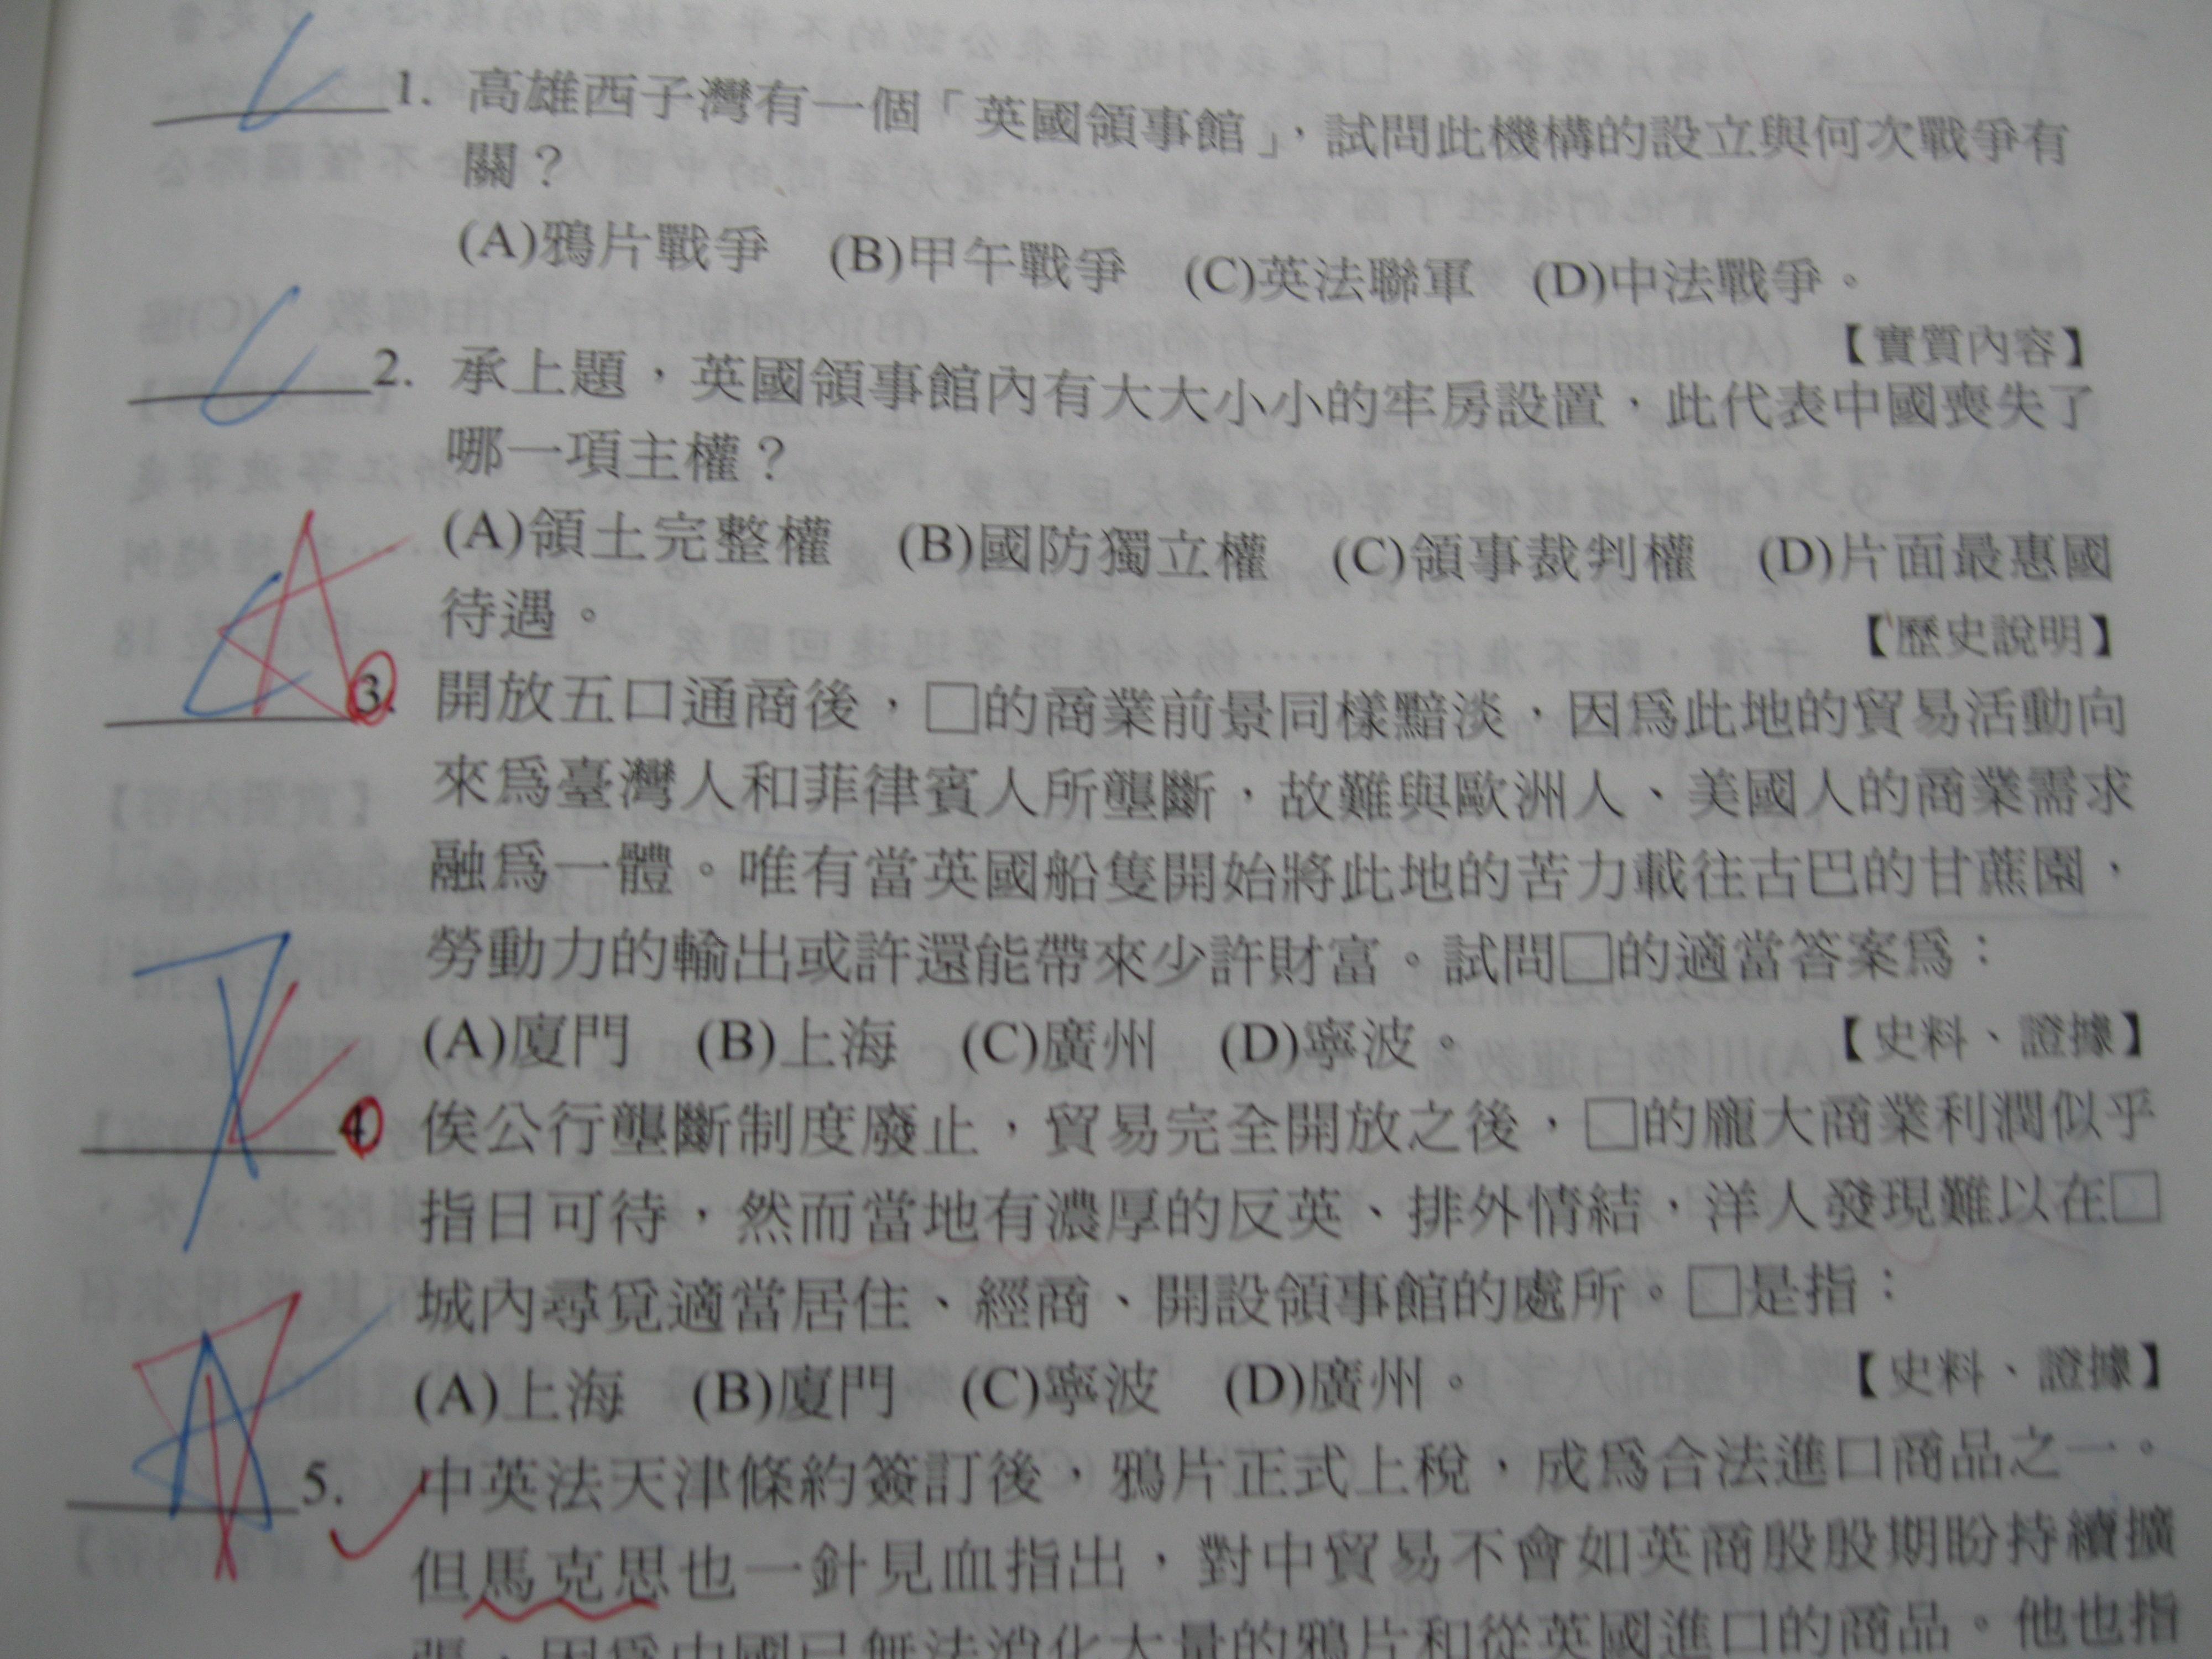 1. 高雄西子灣有一個「英國領事館」，試問此機構的設立與何次戰爭有
關？
(A)鴉片戰爭 (B)甲午戰爭 (C)英法聯軍 (D)中法戰爭。
【實質內容】
2. 承上題，英國領事館內有大大小小的牢房設置，此代表中國喪失了
哪一項主權？
(A)領土完整權 (B)國防獨立權 (C)領事裁判權 (D)片面最惠國
待遇。 【歷史說明】
3. 開放五口通商後，□的商業前景同樣黯淡，因為此地的貿易活動向
來為臺灣人和菲律賓人所壟斷，故難與歐洲人、美國人的商業需求
融為一體。唯有當英國船隻開始將此地的苦力載往古巴的甘蔗園，
勞動力的輸出或許還能帶來少許財富。試問□的適當答案為：
(A)廈門 (B)上海 (C)廣州 (D)寧波。 【史料、證據】
4. 俟公行壟斷制度廢止，貿易完全開放之後，□的龐大商業利潤似乎
指日可待，然而當地有濃厚的反英、排外情結，洋人發現難以在□
城內尋覓適當居住、經商、開設領事館的處所。□是指：
(A)上海 (B)廈門 (C)寧波 (D)廣州。 【史料、證據】
5. 中英法天津條約簽訂後，鴉片正式上稅，成為合法進口商品之一。
但馬克思也一針見血指出，對中貿易不會如英商殷殷期盼持續擴
張，因為中國已無法消化大量的鴉片和從英國進口的商品。他也指